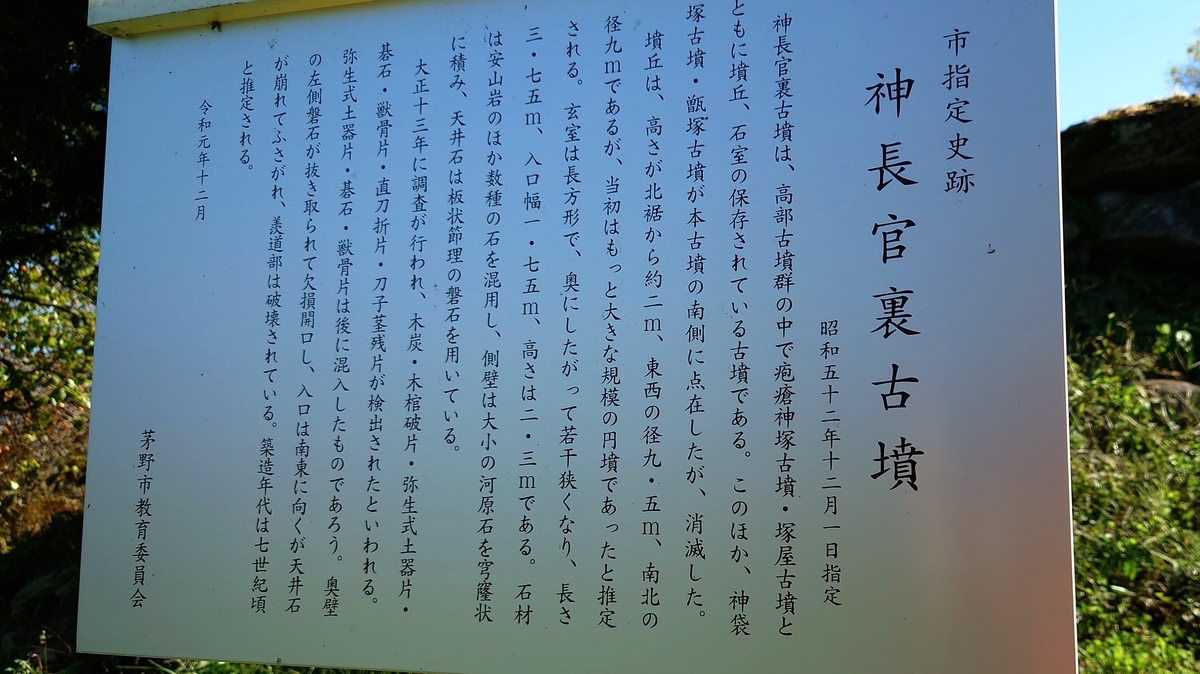 市指定史跡
神長官裏古墳
昭和五十二年十二月一日指定
神長官裏古墳は、高部古墳群の中で疱瘡神塚古墳・塚屋古墳と
ともに墳丘、石室の保存されている古墳である。このほか、神袋
塚古墳・甑塚古墳が本古墳の南側に点在したが、消滅した。
墳丘は、高さが北裾から約二m、東西の径九・五m、南北の
径九mであるが、当初はもっと大きな規模の円墳であったと推定
される。玄室は長方形で、奥にしたがって若干狭くなり、長さ
三・七五m、入口幅一・七五m、高さは二・三mである。石材
は安山岩のほか数種の石を混用し、側壁は大小の河原石を穹窿状
に積み、天井石は板状節理の磐石を用いている。
大正十三年に調査が行われ、木炭・木棺破片・弥生式土器片・
碁石・獣骨片・直刀折片・刀子茎残片が検出されたといわれる。
弥生式土器片・碁石・獣骨片は後に混入したものであろう。奥壁
の左側磐石が抜き取られて欠損開口し、入口は南東に向くが天井石
が崩れてふさがれ、羨道部は破壊されている。築造年代は七世紀頃
と推定される。
令和元年十二月
茅野市教育委員会